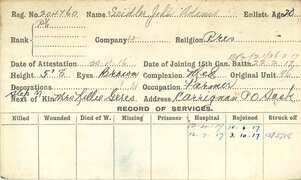 Reg. No. 204760 Seidler, John Adams Enlists. 20
Rank H Company Religion Pres
Date of Attestation 20.4.16 Date of Joining 15th Can. Battn 22.2.17
Height 5'8 Eyes Brown Complexion Med Original Unit
Decorations Occupation Farmer
Step M Next of Kin Mrs Nellie Geres Address Carrignan PO Sask
RECORD OF SERVICES.
Killed Wounded Died of W. Missing Prisoner Hospital Rejoined Struck off
10.6.17
3.10.17 15/5/18